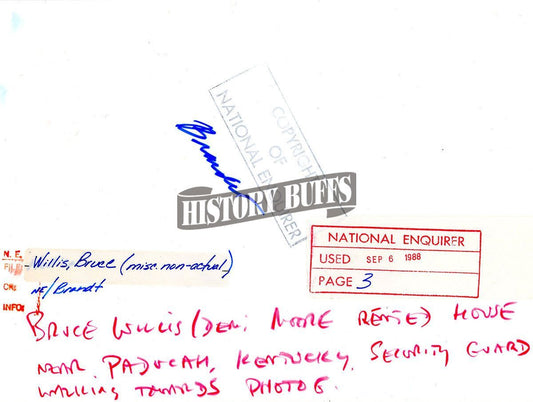 COPYRIGHT
OF
NATIONAL ENQUIRER
Brandt
HISTORY BUFFS
NATIONAL ENQUIRER
USED SEP 6 1988
PAGE 3
N. E.
FILE: Willis, Bruce (misc. non-actual)
CR: NE/Brandt
INFO:
BRUCE WILLIS (DEMI MOORE RENTED) HOUSE
NEAR PADUCAH, KENTUCKY, SECURITY GUARD
WALKING TOWARDS PHOTOG.